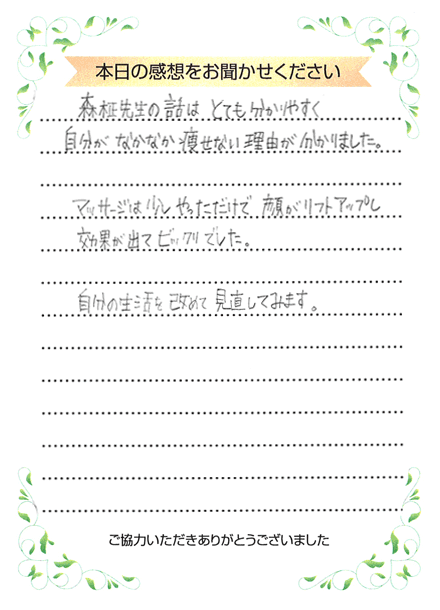 本日の感想をお聞かせください
森柾先生の話は とても分かりやすく
自分が なかなか 痩せない 理由が 分かりました。
マッサージは 少し やっただけで 顔がリフトアップし
効果が出て ビックリでした。
自分の生活を 改めて 見直してみます。
ご協力いただきありがとうございました